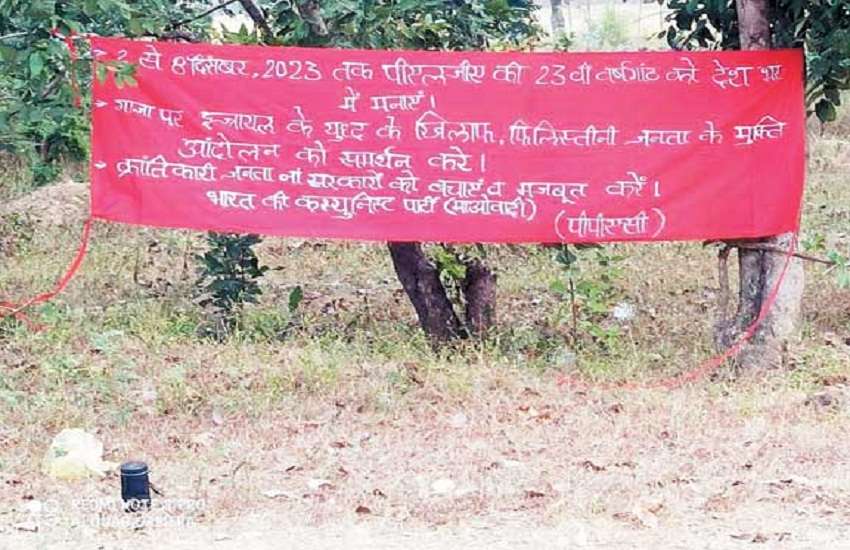 ➤ 2 से 8 दिसंबर, 2023 तक पीएलजीए की 23 वी वर्षगांठ को देश भर
में मनाएं।
➤ गाजा पर इज्रायल के युद्ध के खिलाफ, फिलिस्तीनी जनता के मुक्ति
आंदोलन को समर्थन करे।
➤ क्रांतिकारी जनता ना सरकारों को बचाएं व मजबूत करें।
भारत की कम्युनिस्ट पार्टी (माओवादी)
(पीपीएससी)
REDMI NOTE 5 PRO
AI DUAL CAMERA